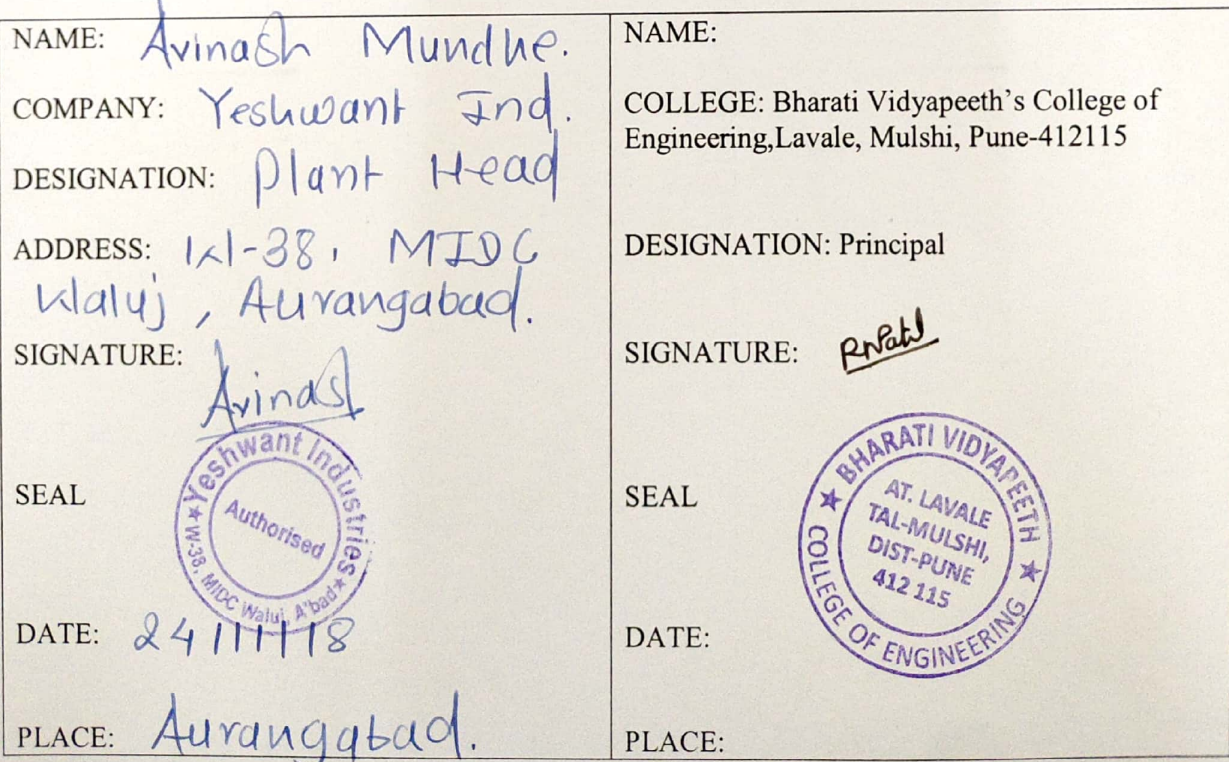 NAME: Avinash Mundhe.
COMPANY: Yeshwant Ind.
DESIGNATION: Plant Head
ADDRESS: W-38, MIDC
Waluj, Aurangabad.
SIGNATURE:
Avinash
SEAL
★ Yeshwant Industries ★ W-38, MIDC Waluj, A'bad
Authorised
DATE: 24/11/18
PLACE: Aurangabad.
NAME:
COLLEGE: Bharati Vidyapeeth's College of
Engineering,Lavale, Mulshi, Pune-412115
DESIGNATION: Principal
SIGNATURE: RNPatil
SEAL
★ BHARATI VIDYAPEETH ★ COLLEGE OF ENGINEERING
AT. LAVALE
TAL-MULSHI,
DIST-PUNE
412 115
DATE:
PLACE: